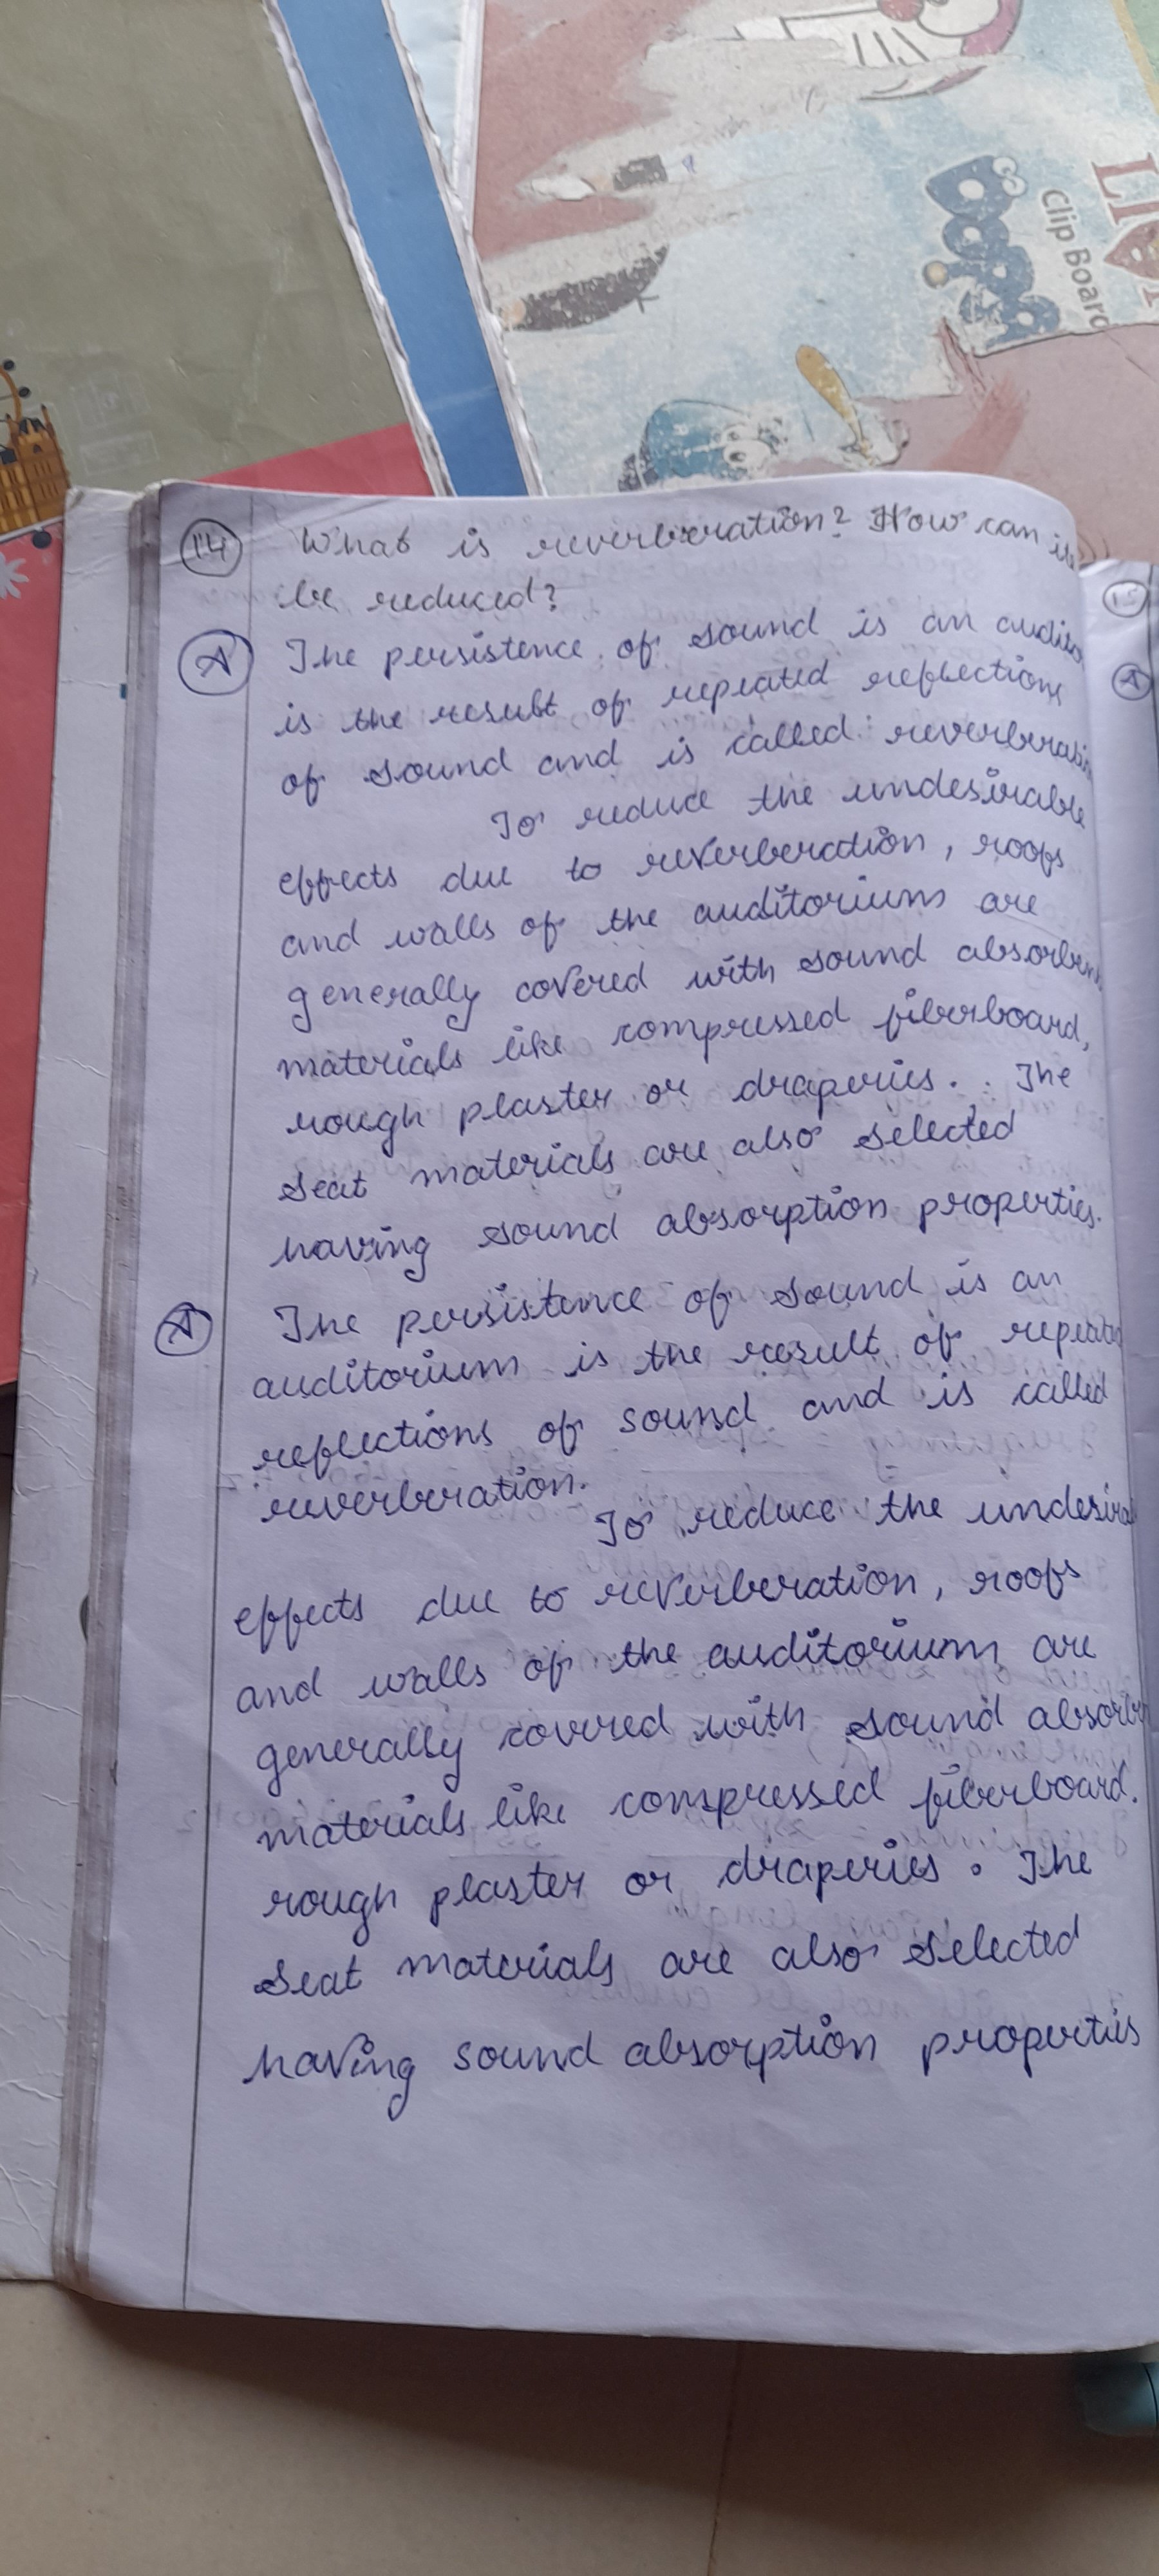 Clip Board
14 What is reverberation? How can it
be reduced?
A The persistence of sound is an audito
is the result of repeated reflections
of sound and is called reverberation
To reduce the undesirable
effects due to reverberation, roofs
and walls of the auditorium are
generally covered with sound absorbent
materials like compressed fiberboard,
rough plaster or draperies. The
seat materials are also selected
having sound absorption properties.
A The persistence of sound is an
auditorium is the result of repeated
reflections of sound and is called
reverberation.
To reduce the undesira
effects due to reverberation, roofs
and walls of the auditorium are
generally covered with sound absorb
materials like compressed fiberboard.
rough plaster or draperies. The
seat materials are also selected
having sound absorption properties
15
A